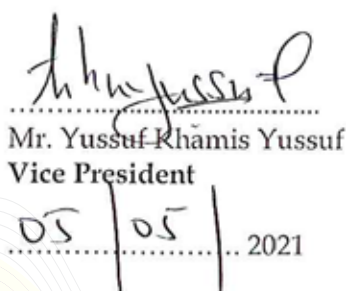 Mr. Yussuf Khamis Yussuf
Vice President
05 | 05 | 2021